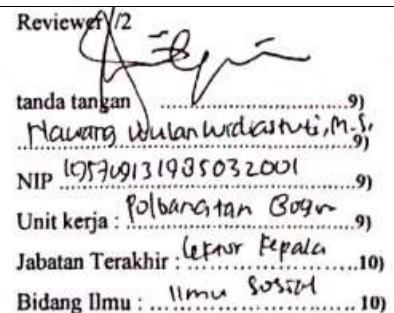 Reviewer 1/2
tanda tangan ..................9)
Nawang Wulan Widiastuti, M.S,
..................9)
NIP 195709131985032001 ..................9)
Unit kerja : Polbangtan Bogor ..................9)
Jabatan Terakhir : Lektor Kepala ..................10)
Bidang Ilmu : Ilmu Sosial ..................10)